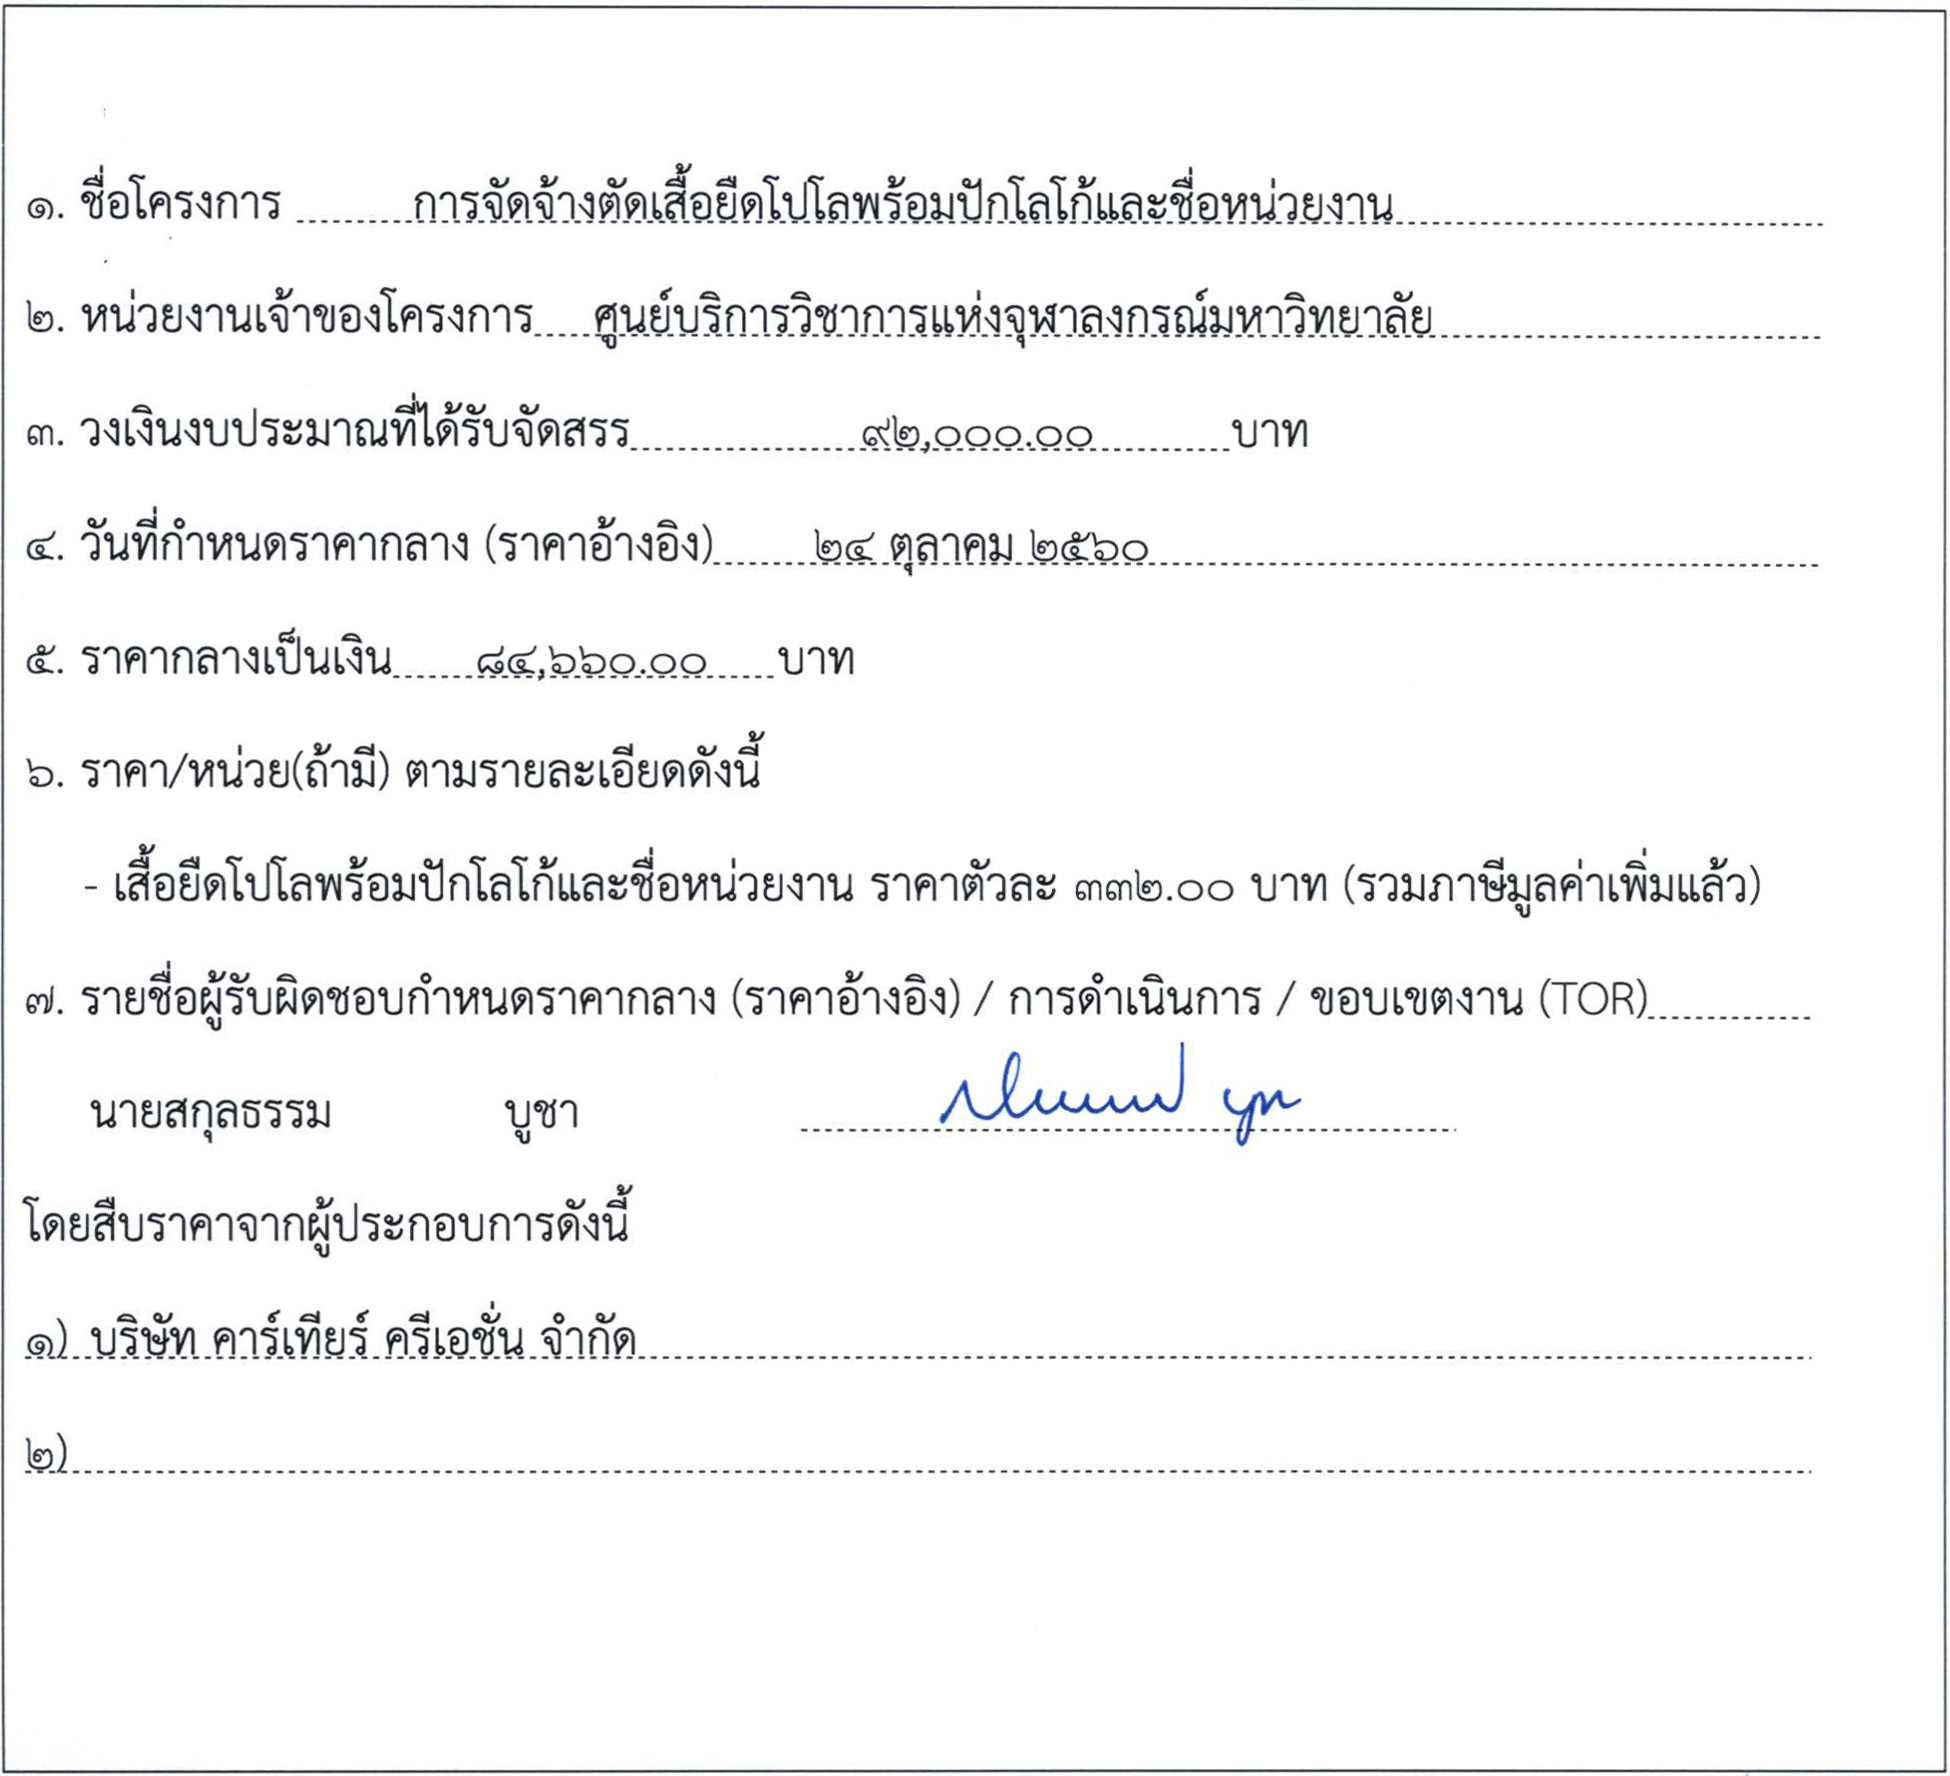 ๑. ชื่อโครงการ ............การจัดจ้างตัดเสื้อยืดโปโลพร้อมปักโลโก้และชื่อหน่วยงาน............
๒. หน่วยงานเจ้าของโครงการ......ศูนย์บริการวิชาการแห่งจุฬาลงกรณ์มหาวิทยาลัย............
๓. วงเงินงบประมาณที่ได้รับจัดสรร............๙๒,๐๐๐.๐๐............บาท
๔. วันที่กำหนดราคากลาง (ราคาอ้างอิง)............๒๔ ตุลาคม ๒๕๖๐............
๕. ราคากลางเป็นเงิน.........๘๔,๖๖๐.๐๐.........บาท
๖. ราคา/หน่วย(ถ้ามี) ตามรายละเอียดดังนี้
- เสื้อยืดโปโลพร้อมปักโลโก้และชื่อหน่วยงาน ราคาตัวละ ๓๓๒.๐๐ บาท (รวมภาษีมูลค่าเพิ่มแล้ว)
๗. รายชื่อผู้รับผิดชอบกำหนดราคากลาง (ราคาอ้างอิง) / การดำเนินการ / ขอบเขตงาน (TOR)............
นายสกุลธรรม บูชา ............
โดยสืบราคาจากผู้ประกอบการดังนี้
๑) บริษัท คาร์เทียร์ ครีเอชั่น จำกัด............
๒)............